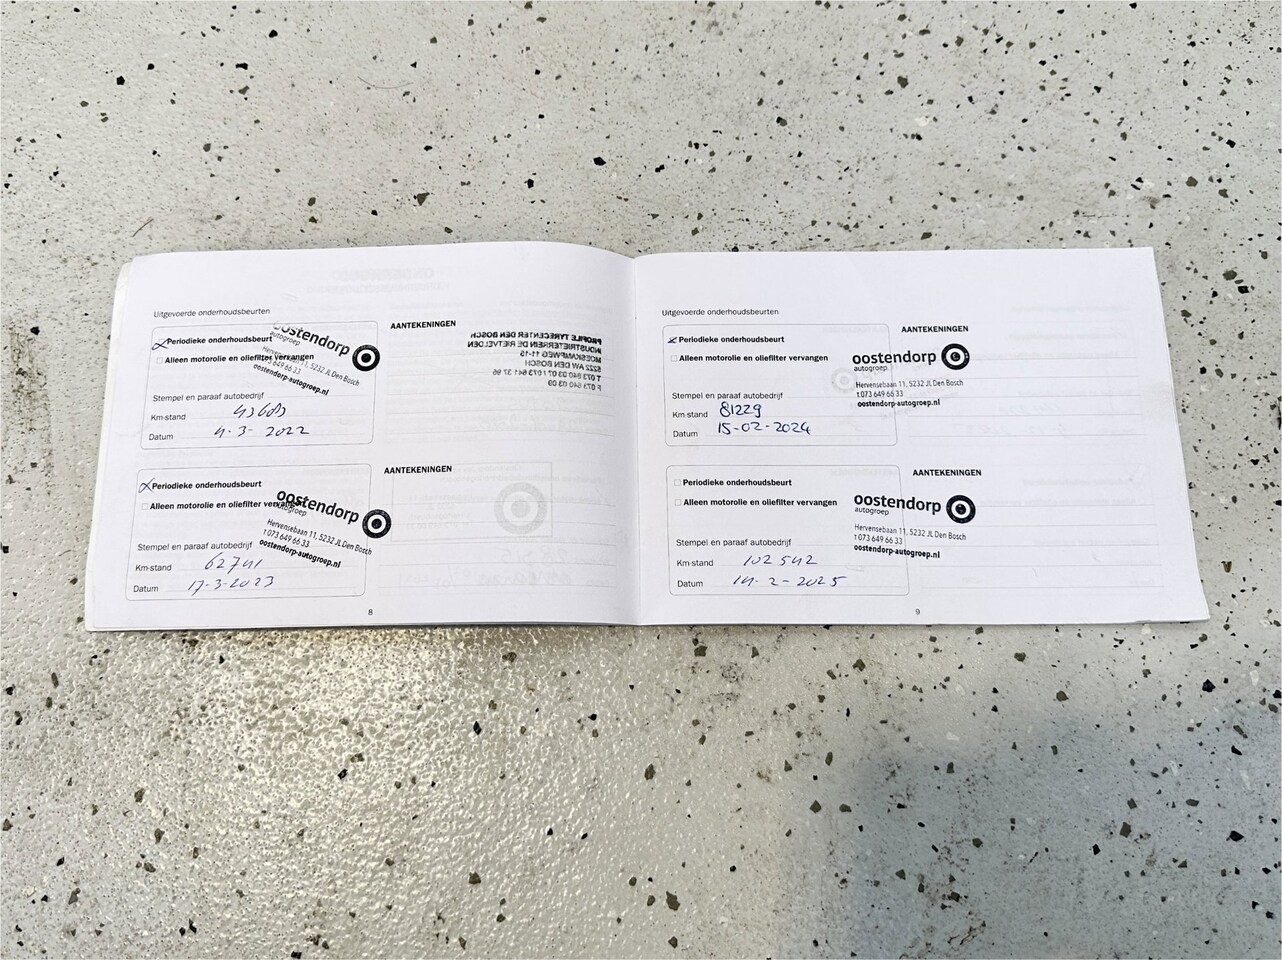 Uitgevoerde onderhoudsbeurten
Periodieke onderhoudsbeurt
Alleen motorolie en oliefilter vervangen
oostendorp
autogroep
Hervensebaan 11, 5232 JL Den Bosch
t 073 649 66 33
oostendorp-autogroep.nl
Stempel en paraaf autobedrijf
Km-stand
Datum 4-3-2022
AANTEKENINGEN
PROFILE TYRECENTER DEN BOSCH
INDUSTRIETERREIN DE RIETVELDEN
MOESKAMPWEG 11-15
5222 AW DEN BOSCH
Periodieke onderhoudsbeurt
Alleen motorolie en oliefilter vervangen
oostendorp
autogroep
Hervensebaan 11, 5232 JL Den Bosch
t 073 649 66 33
oostendorp-autogroep.nl
Stempel en paraaf autobedrijf
Km-stand 62741
Datum 17-3-2023
AANTEKENINGEN
8
Uitgevoerde onderhoudsbeurten
Periodieke onderhoudsbeurt
Alleen motorolie en oliefilter vervangen
oostendorp
autogroep
Hervensebaan 11, 5232 JL Den Bosch
t 073 649 66 33
oostendorp-autogroep.nl
Stempel en paraaf autobedrijf
Km-stand 81229
Datum 15-02-2024
AANTEKENINGEN
Periodieke onderhoudsbeurt
Alleen motorolie en oliefilter vervangen
oostendorp
autogroep
Hervensebaan 11, 5232 JL Den Bosch
t 073 649 66 33
oostendorp-autogroep.nl
Stempel en paraaf autobedrijf
Km-stand 102542
Datum 14-2-2025
AANTEKENINGEN
9